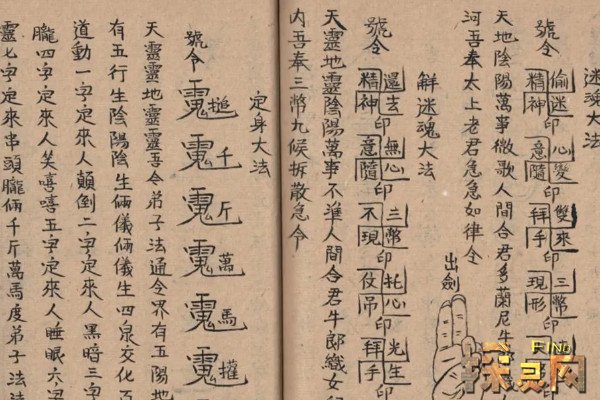 迷魂大法
號令
偷迷 心變 雙來 三幣
精神 意隨 拜手 現形
印 印 印 印
天地陰陽萬事微歌人間合君多蘭尼牛
河吾奉太上老君急急如律令
出劍
解迷魂大法
號令
還去 無心 三幣 托心 光生
精神 意隨 不現 仗吊 拜手
印 印 印 印 印
天靈地靈陰陽萬事不準人間合君牛郎織女
內吾奉三幣九候拆散急令
定身大法
號令
搥 千 斤 萬 馬 攉
天靈靈地靈靈吾令弟子法通令界有五陽地
有五行生陰陽陰生倆儀倆儀生四泉交化
道動一字定來人顛倒二字定來人黑暗三字
朧四字定來人笑嘻嘻五字定來人睡眠六字
靈七字定來串頭朧倆千斤萬馬度弟子法
FIND
探灵网